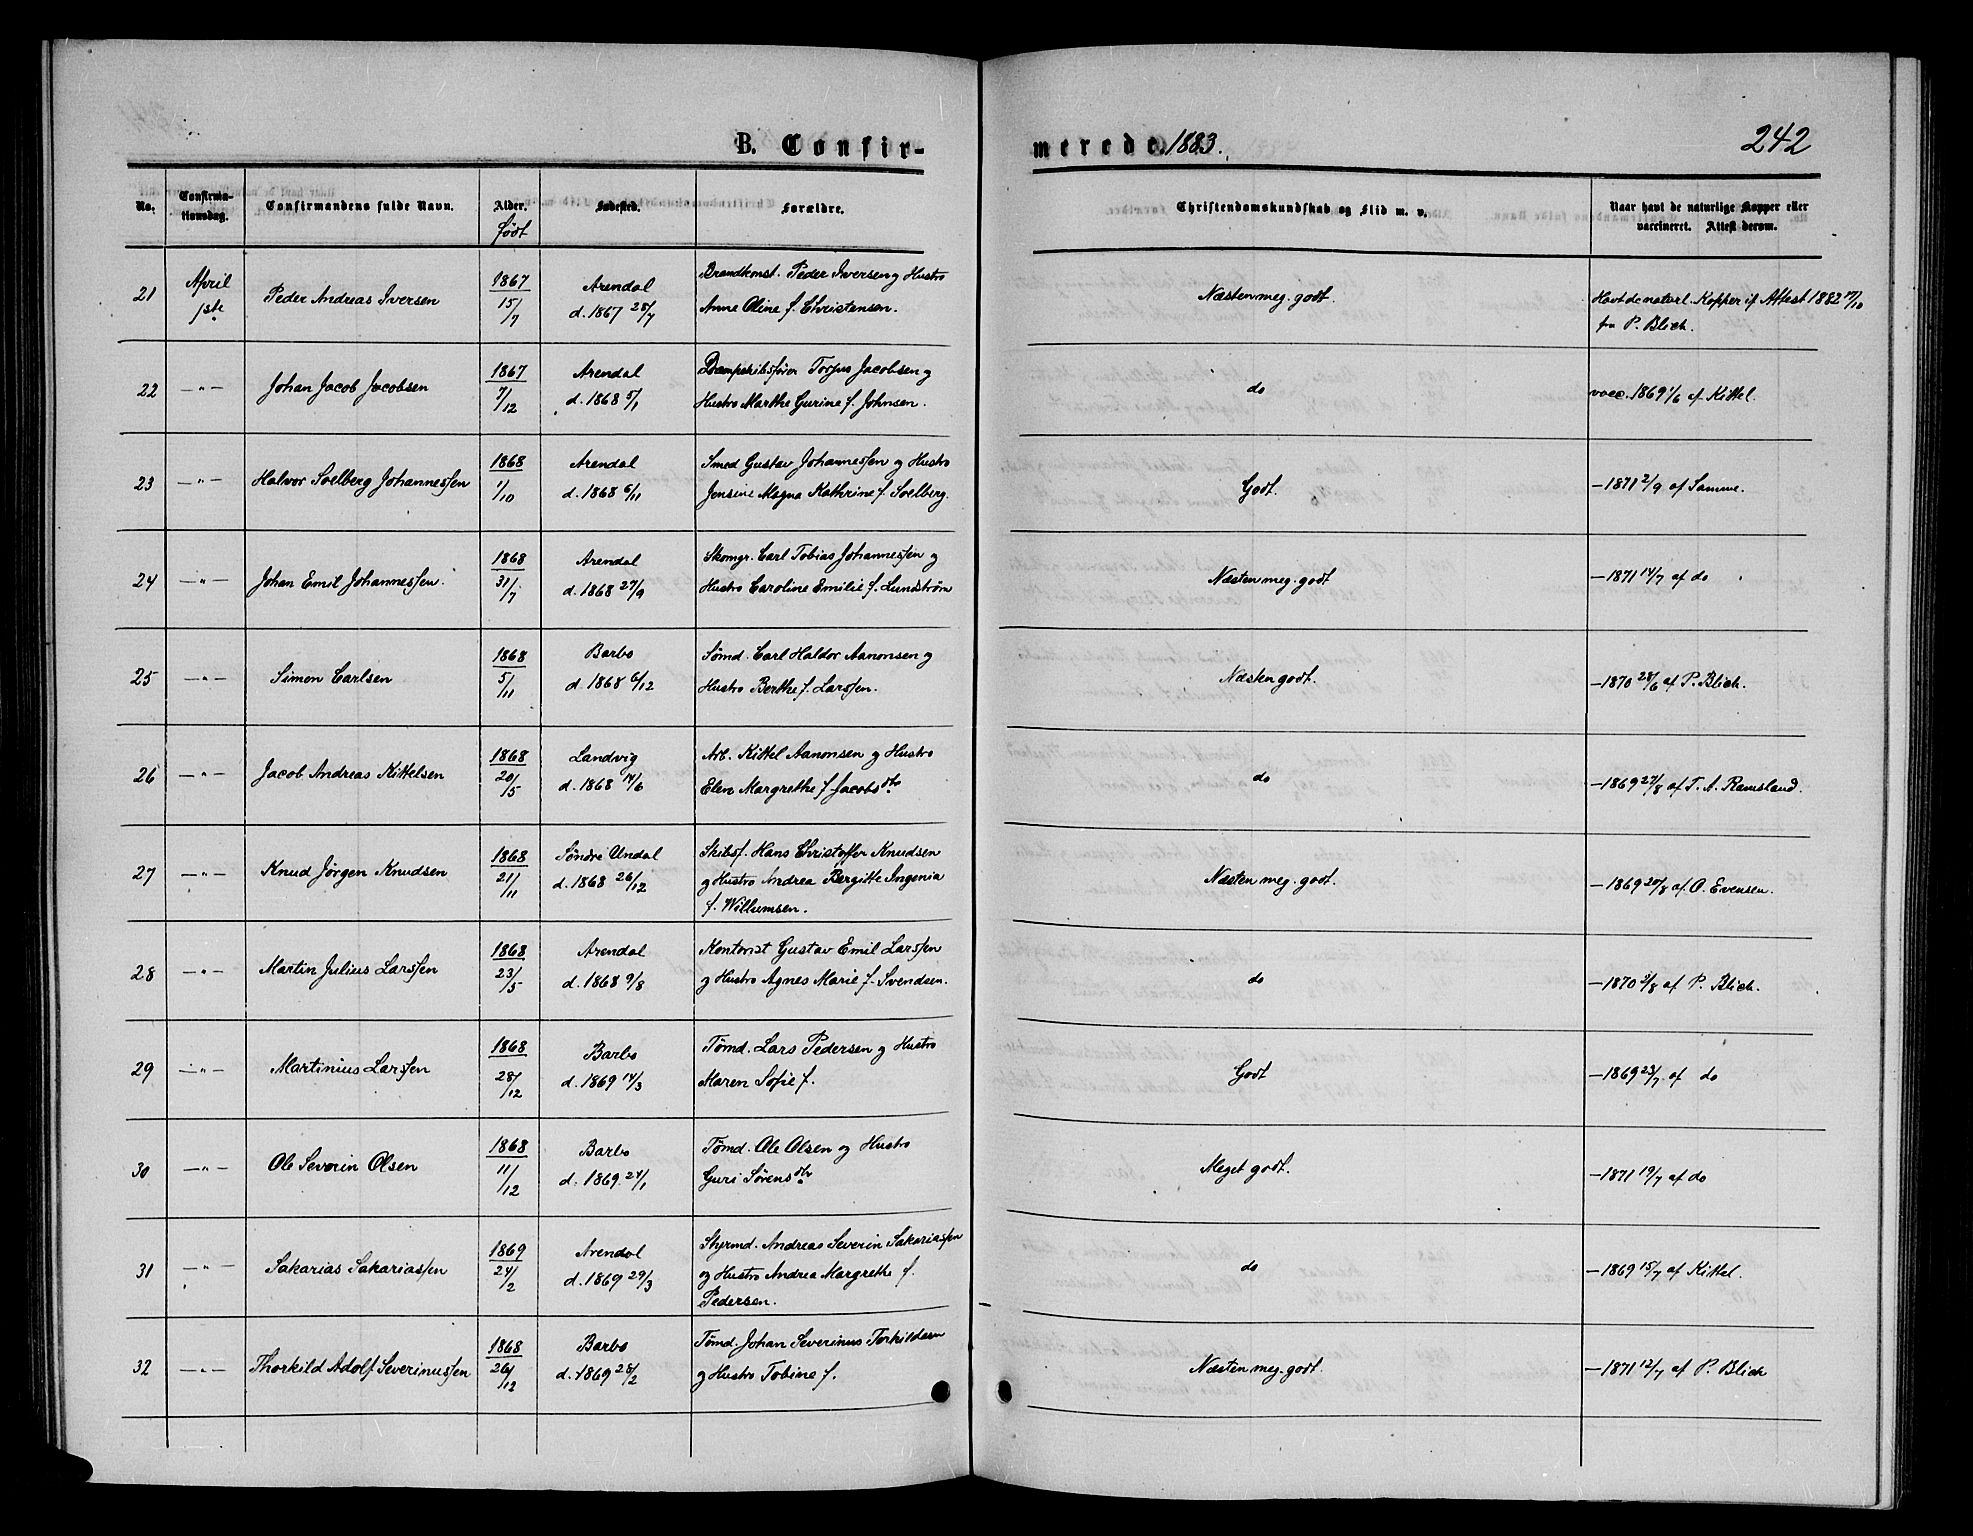 B. Confir-
merede 1883.
242
No.
Confirma-
tionsdag.
Confirmandens fulde Navn.
Alder.
født
Fødested.
Forældre.
Christendomskundskab og Flid m. v.
Naar havt de naturlige Kopper eller
vaccineret. Attest derom.
21 April 1ste Peder Andreas Iversen 1867 15/7 Arendal d. 1867 28/7
Brandkonst. Peder Iversen og Hustro
Anne Oline f. Christensen.
Næsten meg. godt.
Havt de naturl. Kopper if Attest 1882 17/10
fra P. Blich.
22 —"— Johan Jacob Jacobsen 1867 7/12 Arendal d. 1868 5/1
Dampskibsfører Torjus Jacobsen og
Hustro Marthe Gurine f. Johnsen.
do
vacc. 1869 1/6 af Kittel.
23 —"— Halvor Solberg Johannessen 1868 1/10 Arendal d. 1868 6/11
Smed Gustav Johannessen og Hustro
Jensine Magna Kathrine f. Solberg.
Godt.
— 1871 2/9 af Samme.
24 —"— Johan Emil Johannessen. 1868 31/7 Arendal d. 1868 27/9
Skomgr. Carl Tobias Johannessen og
Hustro Caroline Emilie f. Lundstrøm
Næsten meg. godt
— 1871 14/7 af do
25 —"— Simon Carlsen 1868 5/11 Barbo d. 1868 6/12
Tømd. Carl Haldor Aanonsen og
Hustro Berthe f. Larssen.
Næsten godt.
— 1870 28/6 af P. Blich.
26 —"— Jacob Andreas Kittelsen 1868 20/5 Landvig d. 1868 14/6
Arb. Kittel Aanonsen og Hustro
Elen Margrethe f. Jacobsdtr
do
— 1869 27/8 af T. A. Ramsland.
27 —"— Knud Jørgen Knudsen 1868 21/11 Søndre Undal d. 1868 26/12
Skibsf. Hans Christoffer Knudsen
og Hustro Andrea Bergitte Ingenia
f. Willumsen.
Næsten meg. godt.
— 1869 20/8 af O. Evensen.
28 —"— Martin Julius Larssen 1868 23/5 Arendal d. 1868 9/8
Kontorist Gustav Emil Larssen
og Hustro Agnes Marie f. Svendsen.
do
— 1870 3/8 af P. Blich.
29 —"— Martinius Larssen 1868 28/12 Barbo d. 1869 14/3
Tømd. Lars Pedersen og Hustro
Maren Sofie f.
Godt
— 1869 23/7 af do
30 —"— Ole Severin Olsen 1868 11/12 Barbo d. 1869 24/1
Tømd. Ole Olsen og Hustro
Guri Sørensdtr
Meget godt.
— 1871 19/7 af do
31 —"— Sakarias Sakariassen 1869 24/2 Arendal d. 1869 29/3
Styrmd. Andreas Severin Sakariassen
og Hustro Andrea Margrethe f.
Pedersen.
do
— 1869 15/7 af Kittel.
32 —"— Thorkild Adolf Severinussen 1868 26/12 Barbo d. 1869 28/2
Tømd. Johan Severinus Torkildsen
og Hustro Tobine f.
Næsten meg. godt.
— 1871 12/7 af P. Blich